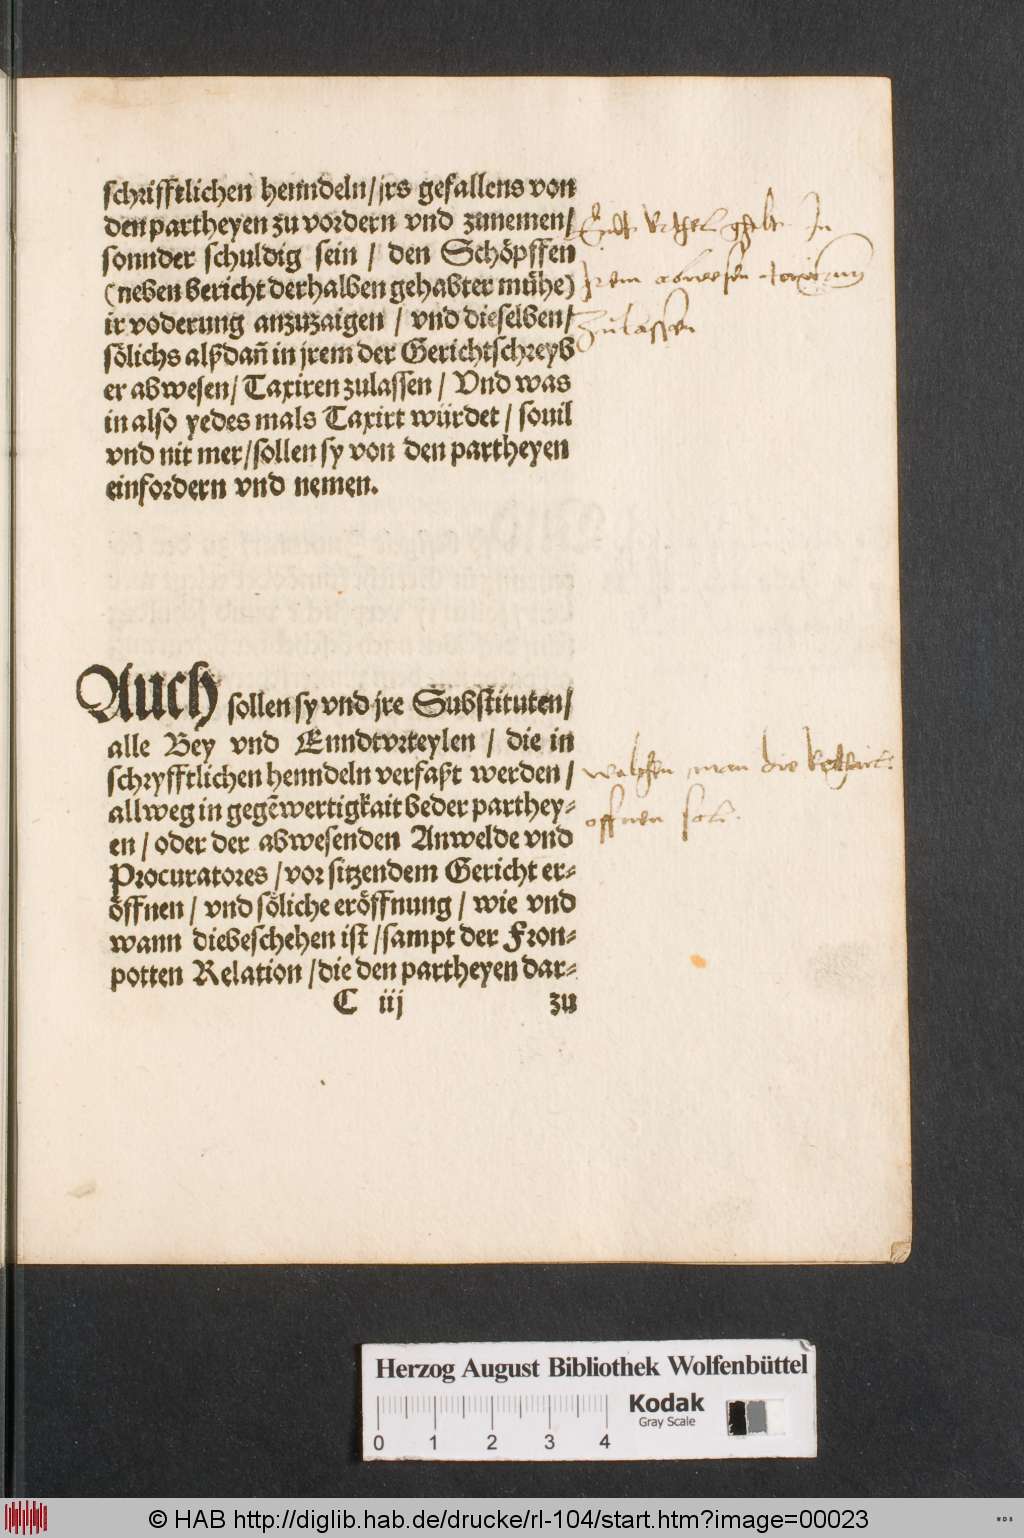 schrifftlichen henndeln / jrs gefallens von
den partheyen zu vordern vnd zunemen /
sonnder schuldig sein / den Schöpffen
(neben bericht derhalben gehabter mühe)
ir voderung anzuzaigen / vnd dieselben /
sölichs alßdañ in jrem der Gerichtschreyb
er abwesen / Taxiren zulassen / Vnd was
in also yedes mals Taxirt würdet / souil
vnd nit mer / sollen sy von den partheyen
einfordern vnd nemen.
In
jrem abwesen
zulassen
Auch sollen sy vnd jre Substituten /
alle Bey vnd Enndtvrteylen / die in
schryfftlichen henndeln verfaßt werden /
allweg in gegẽwertigkait beder parthey-
en / oder der abwesenden Anwelde vnd
Procuratores / vor sitzendem Gericht er-
öffnen / vnd söliche eröffnung / wie vnd
wann diebeschehen ist / sampt der Fron-
potten Relation / die den partheyen dar-
C iij zu
man die
offnen sol.
Herzog August Bibliothek Wolfenbüttel
Kodak
Gray Scale
0 1 2 3 4
© HAB http://diglib.hab.de/drucke/rl-104/start.htm?image=00023